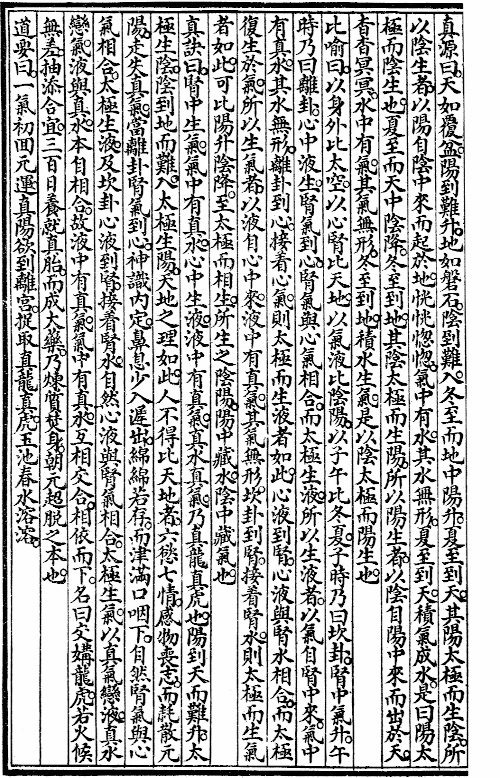 真源曰天如覆盆陽到難升地如磐石陰到難入冬至而地中陽升夏至到天其陽太極而生陰所
以陰生者以陽自陰中來而起於地恍恍惚惚氣中有水其水無形夏至到天積氣成水是曰陽太
極而陰生也夏至而天中陰降冬至到地其陰太極而生陽所以陽生者以陰自陽中來而出於天
杳杳冥冥水中有氣其氣無形冬至到地積水生氣是以陰太極而陽生也
比喻曰以身外比太空以心腎比天地以氣液比陰陽以子午比冬夏子時乃曰坎卦腎中氣升午
時乃曰離卦心中液生腎氣到心腎氣與心氣相合而太極生液所以生液者以氣自腎中來氣中
有真水其水無形離卦到心接看心氣則太極而生液者如此心液到腎心液與腎水相合而太極
復生於氣所以生氣者以液自心中來液中有真氣其氣無形坎卦到腎接看腎水則太極而生氣
者如此可比陽升陰降至太極而相生所生之陰陽陽中藏水陰中藏氣也
真訣曰腎中生氣氣中有真水心中生液液中有真氣真水真氣乃真龍真虎也陽到天而難升太
極生陰陰到地而難入太極生陽天地之理如此人不得比天地者六慾七情感物喪志而耗散元
陽走失真氣當離卦腎氣到心神識內定鼻息少入遲出綿綿若存而津滿口咽下自然腎氣與心
氣相合太極生液及坎卦心液到腎接看腎水自然心液與腎氣相合太極生氣以真氣戀液真水
戀氣液與真水本自相合故液中有真氣氣中有真水互相交合相依而下名曰交媾龍虎若火候
無差抽添合宜三百日養就真胎而成大藥乃煉質焚身朝元超脫之本也
道要曰一氣初回元運真陽欲到離宮捉取真龍真虎玉池春水溶溶